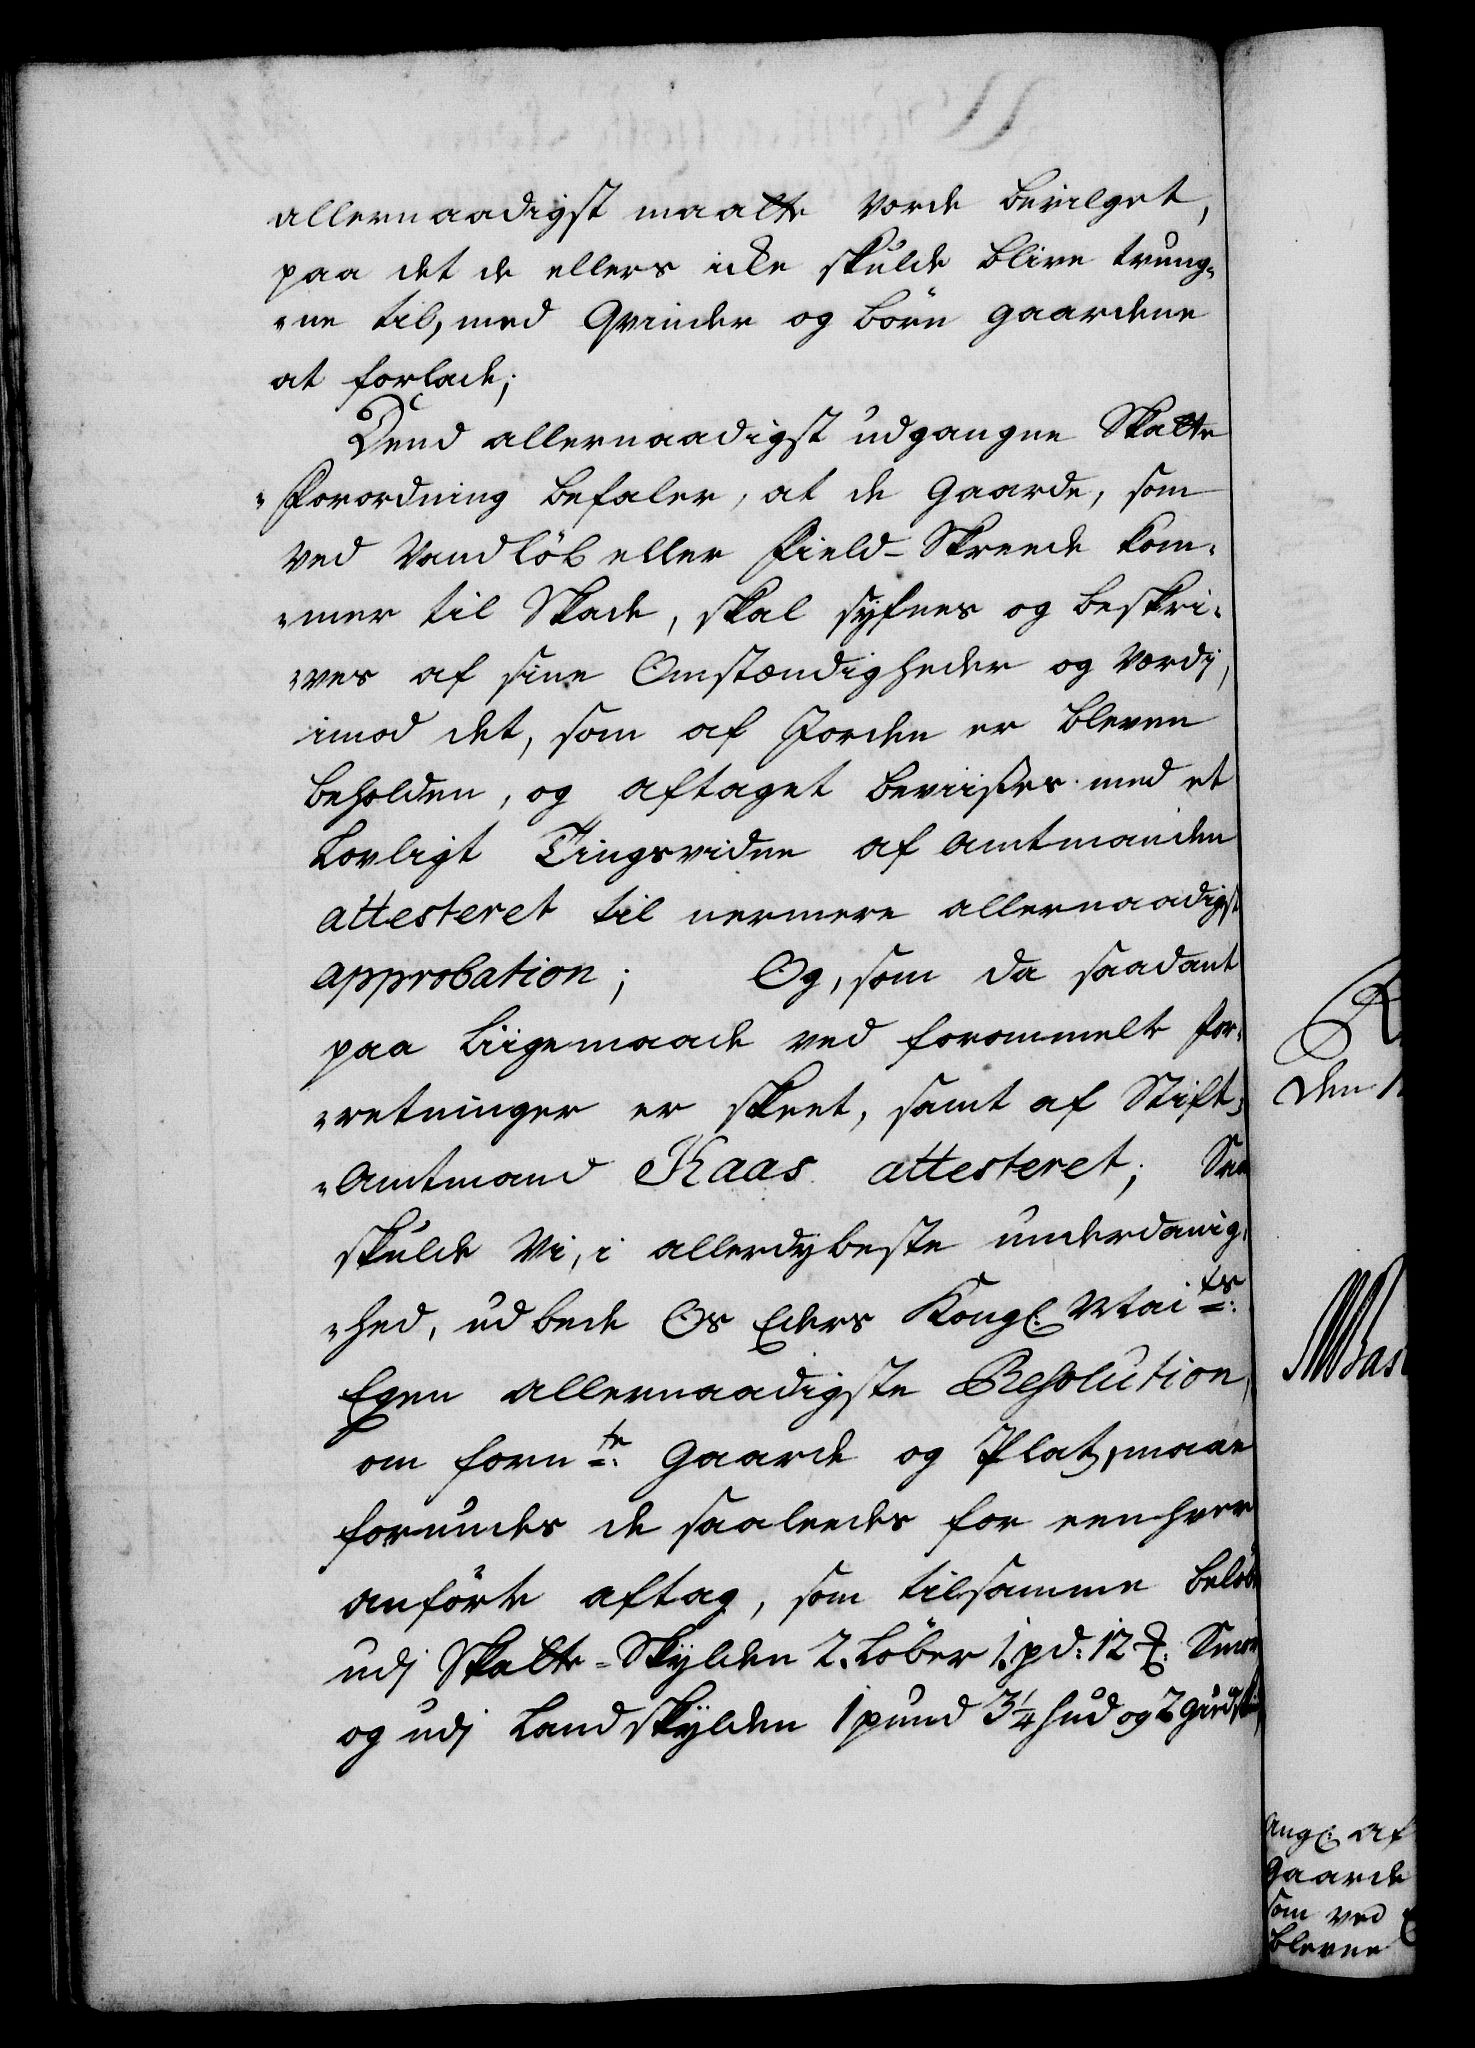 allernaadigst maatte vorde bevilget,
paa det de ellers icke skulde blive trung-
-ne til, med Qvinder og Börn gaardene
at forlade;
Dend allernaadigst udgangne Skatte
-Forordning befaler, at de Gaarde, som
ved Vandlöb eller Field-Skreede kom-
-mer til Skade, skal syfnes og beskri-
-ves af sine Omstændigheder og Værdj,
imod det, som af Jorden er bleven
beholden, og aftaget beviises med et
Lovligt Tingsvidne af Amtmanden
attesteret til nermere allernaadigst
approbation; Og, som da saadant
paa Liigemaade ved forommelte For-
-retninger er skeet, samt af Stift-
-Amtmand Kaas attesteret; Saa
skulde Vi, i allerdybeste underdanig-
-hed, udbede Os Eders Kongl. Maits:
Egen allernaadigste Resolution,
om fornte: Gaarde og Platz, maae
forundes de saaleedes for eenhver
anförte aftag, som tilsamme belöbe
udj Skatte-Skylden 2. Löber 1. pd: 12 ℔. Smör
og udj Landskylden 1 pund 3¼ hud og 2 giedskind
Den
Angl. Af
Gaarde
som ved
blevne